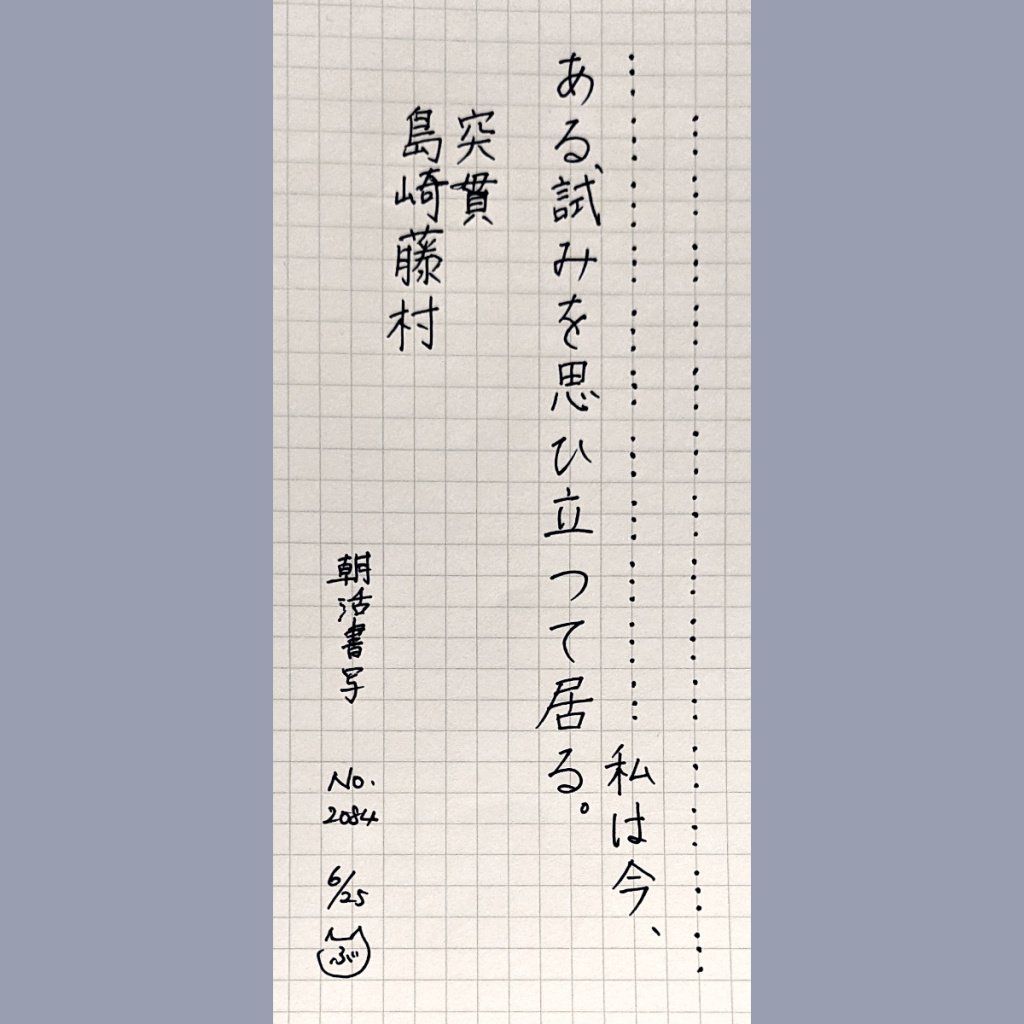 ……………………………………
…………………………私は今、
ある、試みを思ひ立つて居る。
突貫
島崎藤村
朝活書写
No.
2084
6/25
ぶ